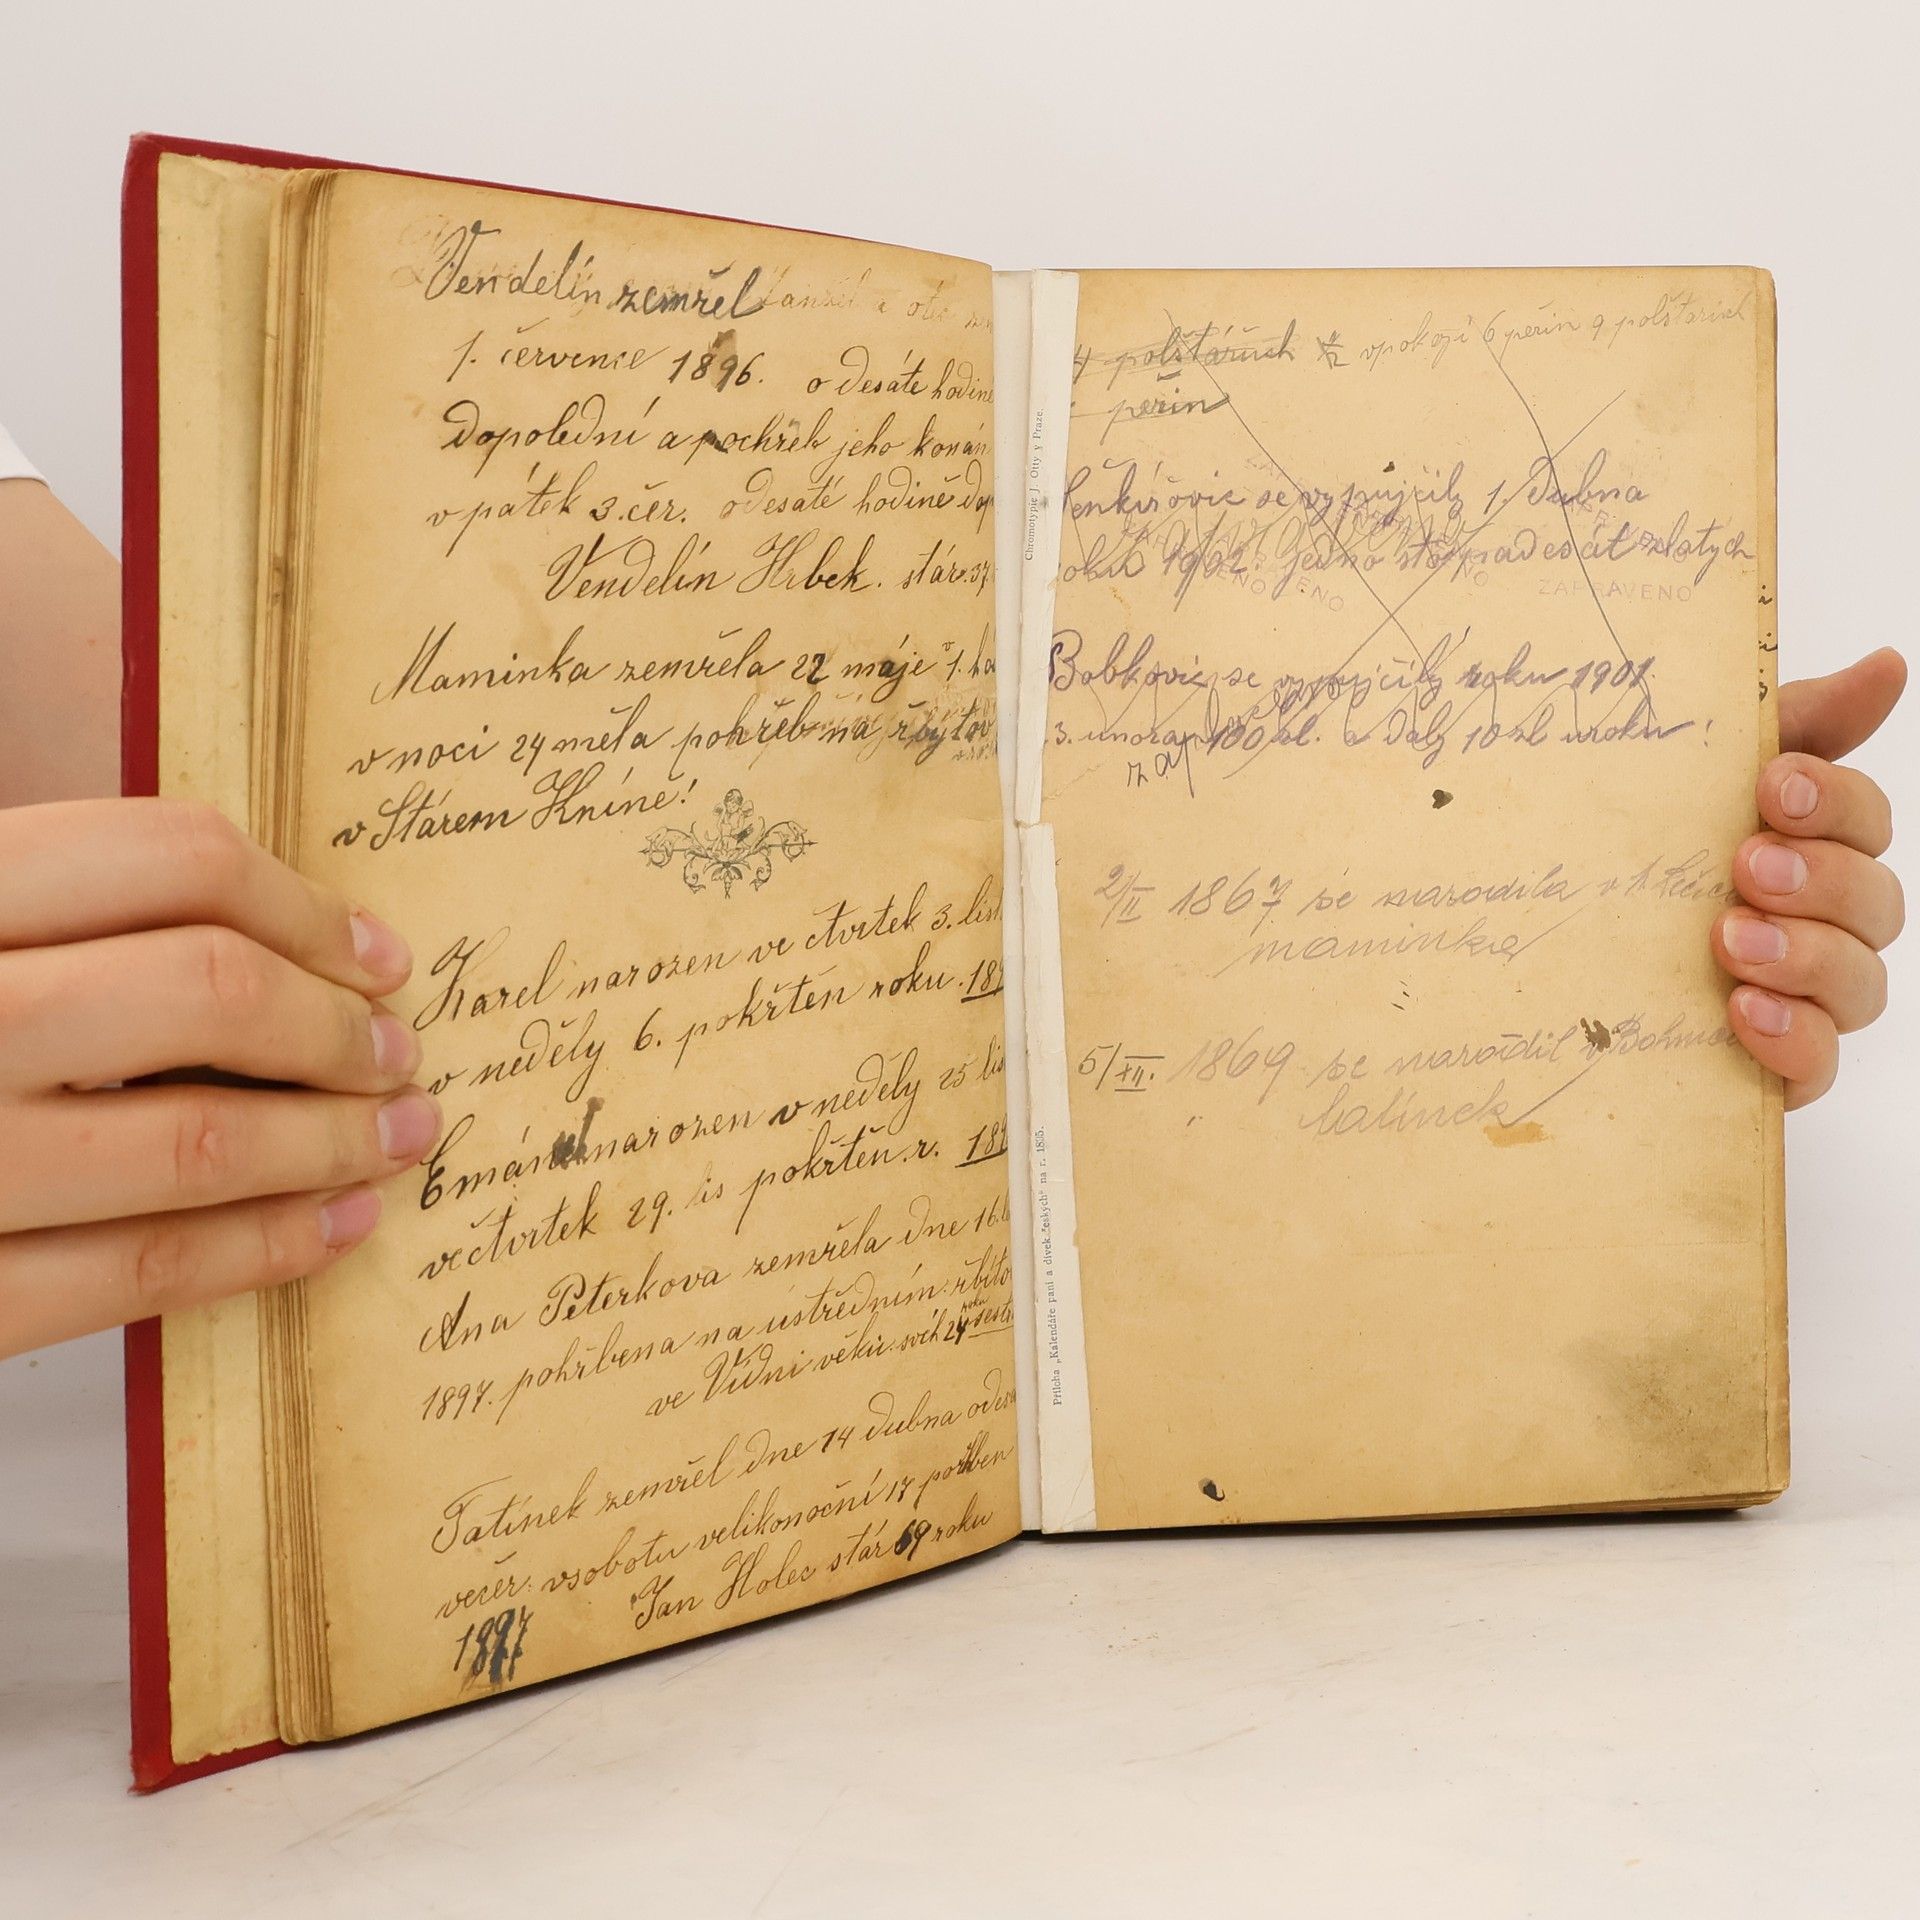 Vendelín zemřel
1. července 1896. o desáte hodině
dopolední a pochřeb jeho konán
v pátek 3. čer. o desaté hodině dop
Vendelín Hrbek. stár. 37.
Maminka zemřela 22 máje v 1. ho
v noci 24 měla pohřeb na řbytov
v Stárem Kníně!
Karel narozen ve čtvrtek 3. list
v neděly 6. pokřtěn roku. 189
Emánuel narozen v neděly 25 lis
ve čtvrtek 29. lis pokřtěn. r. 189
Ana Peterkova zemřela dne 16.
1897. pohřbena na ústředním řbíto
ve Vídni věku svíh 24 roku sestr
Tatínek zemřel dne 14 dubna odesá
večer. vsobotu velikonoční 17 pohřben
Jan Holec stár 69 roku
1897
Chromotypie J. Otty v Praze.
Příloha „Kalendáře paní a dívek českých“ na r. 1895.
4 polštářích vpokoji 6 peřin 9 polštářích
peřin
se vypujčily 1. Dubna
roku 1902. jedno sto padesát zlatych
ZAPRAVENO
Bobkovic se vypujčily roku 1901.
3. unora 100 zl. a daly 10 zl uroku!
2/II 1867 se narodila v
maminka
5/XII. 1869 se narodil v
tatínek